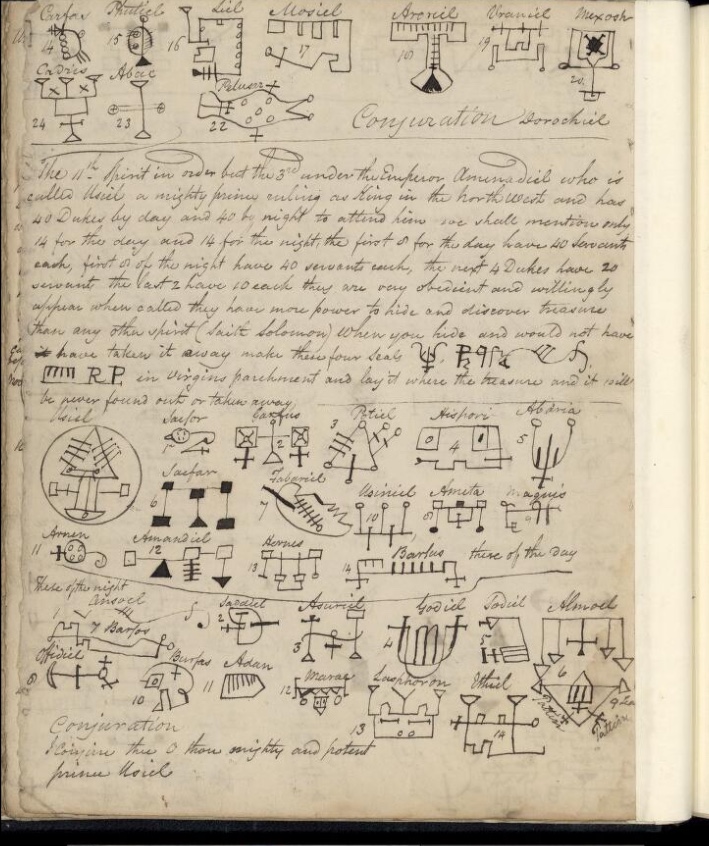 Carfas Phutiel Liel Mosiel Aroziel Vraniel Mexosh
14 15 16 17 18 19 20
Cadries Abac Pelusar
24 23 22
Conjuration Dorochiel
The 11th Spirit in order but the 3rd under the Emperor Amenadiel who is
called Usiel a mighty prince ruling as King in the North West and has
40 Dukes by day and 40 by night to attend him we shall mention only
14 for the day and 14 for the night, the first 8 for the day have 40 Servants
each, first 8 of the night have 40 servants each, the next 4 Dukes have 20
servant the last 2 have 10 each they are very obedient and willingly
appear when called they have more power to hide and discover treasure
than any other spirit (Saith Solomon) When you hide and would not have
it have taken it away make these four seals
R.P. in virgins parchment and lay it where the treasure and it will
be never found out or taken away
Usiel Saefor Potiel Hispori Abaria
1 2 3 4 5
Saefar Fabariel Usiniel Ameta Maguis
6 7 10 8 9
Arnen Amandiel Hernes Barfus these of the day
11 12 13 14
These of the night
Ansoel Saddiel Asuriel Godiel Todiel Almoel
1 7 Barfos 2 3 4 5
Ossidiel Burfas Adan Marae Lasphoron Ethiel 6
8 10 11 12 9
13 14
Conjuration
I Conjure thee O thou mighty and potent
prince Usiel